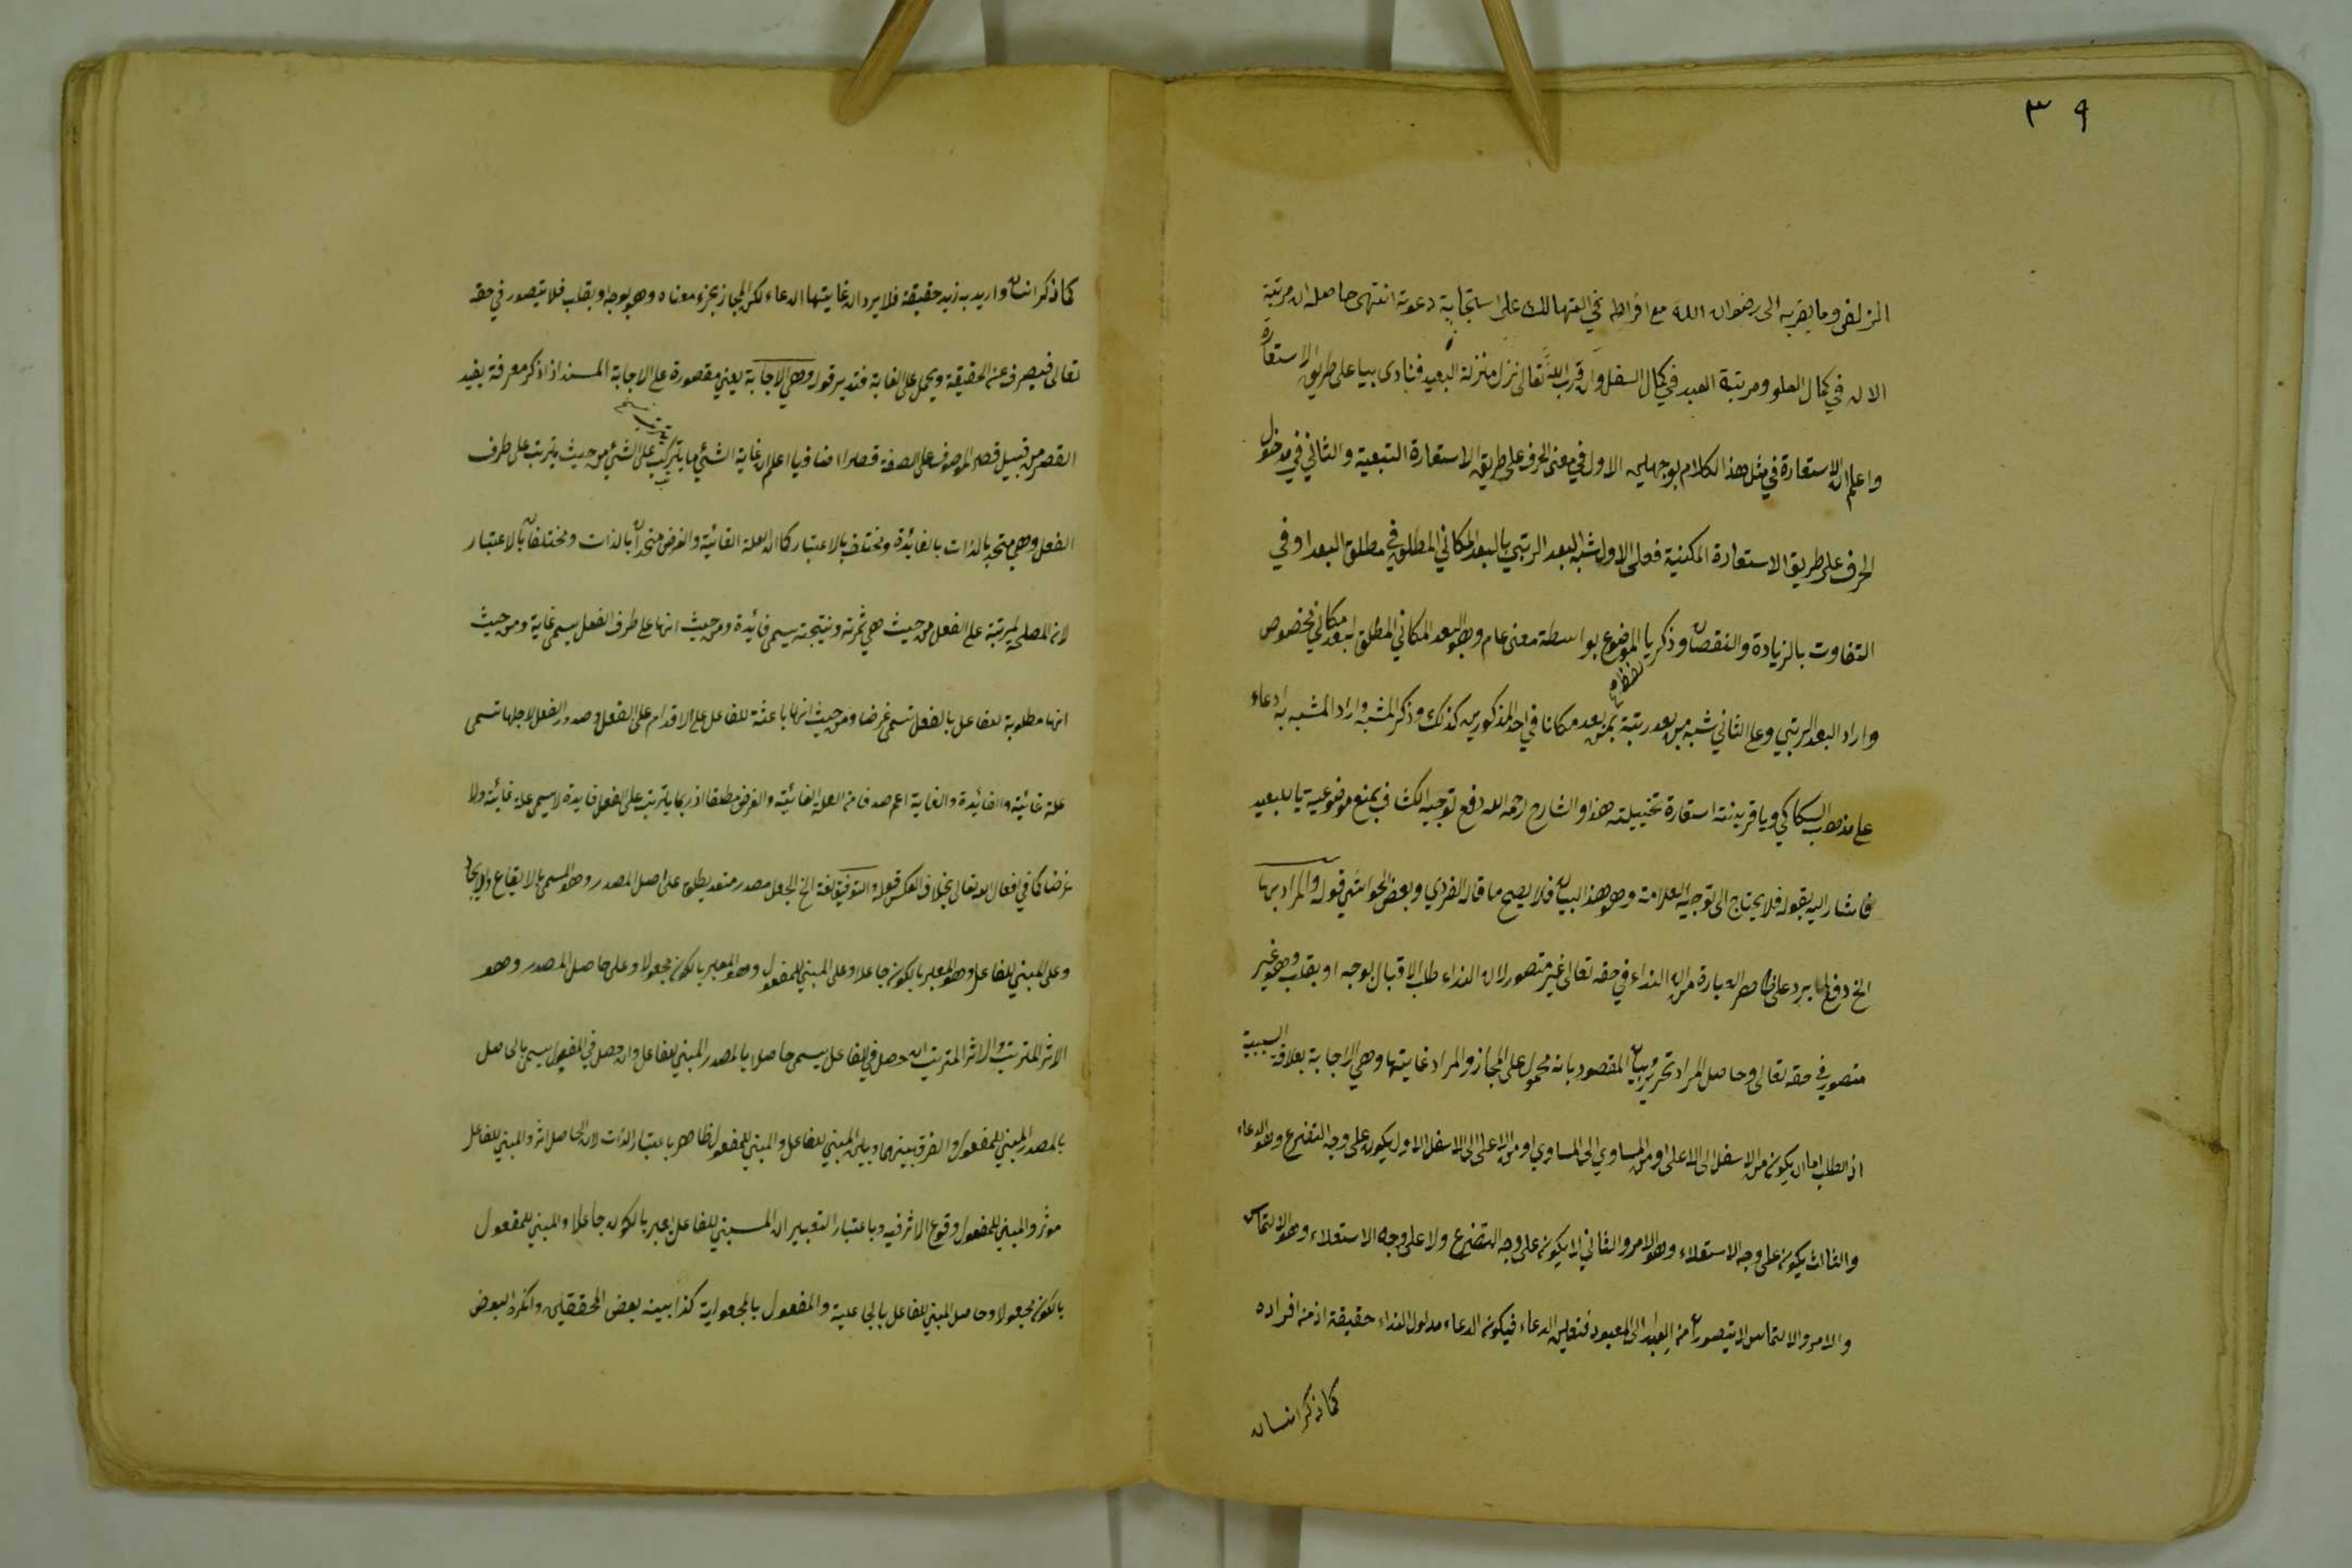 ٣٩
الزلفى وما يقربه الى رضوان الله مع افراطه في التهالك على استجابة دعوته انتهى حاصله ان مرتبة
الاله في كمال العلو ومرتبة العبد في كمال السفل وان قرب الله تعالى نزل منزلة البعيد فنادى بيا على طريق الاستعارة
واعلم ان الاستعارة في مثل هذا الكلام بوجهين الاول في معنى الحرف على طريق الاستعارة التبعية والثاني في مدخول
الحرف على طريق الاستعارة المكنية فعلى الاول شبه البعد الرتبي بالبعد المكاني المطلق في مطلق البعد او في
التفاوت بالزيادة والنقصان وذكر يا الموضوع بواسطة معنى عام وهو البعد المكاني المطلق لبعد مكاني مخصوص
واراد البعد الرتبي وعلى الثاني شبه من بعد رتبة بمن بعد مكانا في احد المذكورين كذلك وذكر المشبه واراد المشبه به ادعاء
لفظ
على مذهب السكاكي ويا قرينته استعارة تخييلية هذا والشارح رحمه الله دفع توجيه الكشاف بمنع موضوعية يا للبعيد
فاشار اليه بقوله فلا يحتاج الى توجيه العلامة وهو هذا البيان فلا يصح ما قال الفردي وبعض الحواشي قوله والمراد بها
الخ دفع لما يرد على ظاهر العبارة من ان النداء في حقه تعالى غير متصور لان النداء طلب الاقبال بوجه او بقلب وهو غير
متصور في حقه تعالى وحاصل المراد تحرير بيان المقصود بانه محمول على المجاز والمراد غايتها وهي الاجابة بعلاقة السببية
اذ الطلب اما ان يكون من الاسفل الى الاعلى او من المساوي الى المساوي او من الاعلى الى الاسفل الاول يكون على وجه التضرع وهو الدعاء
والثالث يكون على وجه الاستعلاء وهو الامر والثاني لا يكون على وجه التضرع ولا على وجه الاستعلاء وهو الالتماس
والامر والالتماس لا يتصوران من العبد الى المعبود فتعين الدعاء فيكون الدعاء مدلول النداء حقيقة اذ من افراده
كما ذكر انسان
كما ذكر انسان واريد به زيد حقيقة فلا يرد ان غايتها الدعاء لكن المجاز بجزء معناه وهو بوجه او بقلب فلا يتصور في حقه
تعالى فيصرف عن الحقيقة ويحمل على الغاية فتدبر قوله وهي الاجابة يعني مقصورة على الاجابة المسند اذا ذكر معرفة يفيد
القصر من قبيل قصر الموصوف على الصفة قصرا اضافيا اعلم ان غاية الشئ ما يترتب على الشئ من حيث يترتب على طرف
الفعل وهي متحد بالذات بالفائدة ومختلف بالاعتبار كما ان العلة الغائية والغرض متحدان بالذات ومختلفان بالاعتبار
لان المصلحة المرتبة على الفعل من حيث هي ثمرته ونتيجته يسمى فائدة ومن حيث انها على طرف الفعل يسمى غاية ومن حيث
انها مطلوبة للفاعل بالفعل تسمى غرضا ومن حيث انها باعثة للفاعل على الاقدام على الفعل وصدور الفعل لاجلها تسمى
علة غائية والفائدة والغاية اعم صدقا من العلة الغائية والغرض مطلقا اذ ربما يترتب على الفعل فايدة لا يسمى علة غائية ولا
غرضا كما في افعال الله تعالى بخلاف العكس قوله والتوفيق لغة الخ الجعل مصدر متعد يطلق على اصل المصدر وهو المسمى بالايقاع والايجاد
وعلى المبني للفاعل وهو المعبر بالكون جاعلا وعلى المبني للمفعول وهو المعبر بالكون مجعولا وعلى حاصل المصدر وهو
الاثر المترتب والاثر المترتب ان حصل في الفاعل يسمى حاصلا بالمصدر المبني للفاعل وان حصل في المفعول يسمى بالحاصل
بالمصدر المبني للمفعول والفرق بينهما وبين المبني للفاعل والمبني للمفعول ظاهر باعتبار الذات لان الحاصل اثر والمبني للفاعل
موثر والمبني للمفعول وقوع الاثر فيه وباعتبار التعبير ان المبني للفاعل يعبر بالكون جاعلا والمبني للمفعول
بالكون مجعولا وحاصل المبني للفاعل بالجاعلية والمفعول بالمجعولية كذا بينه بعض المحققين وانكره البعض